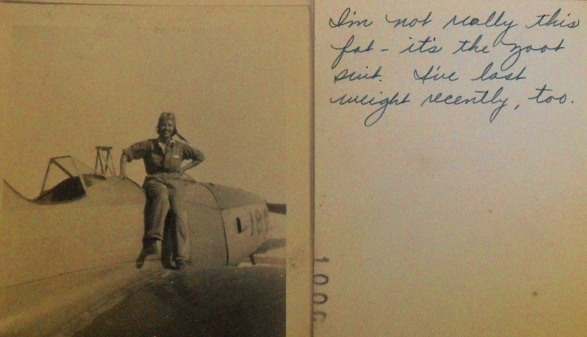 I'm not really this
fat - it's the zoot
suit. I've lost
weight recently, too.
1006